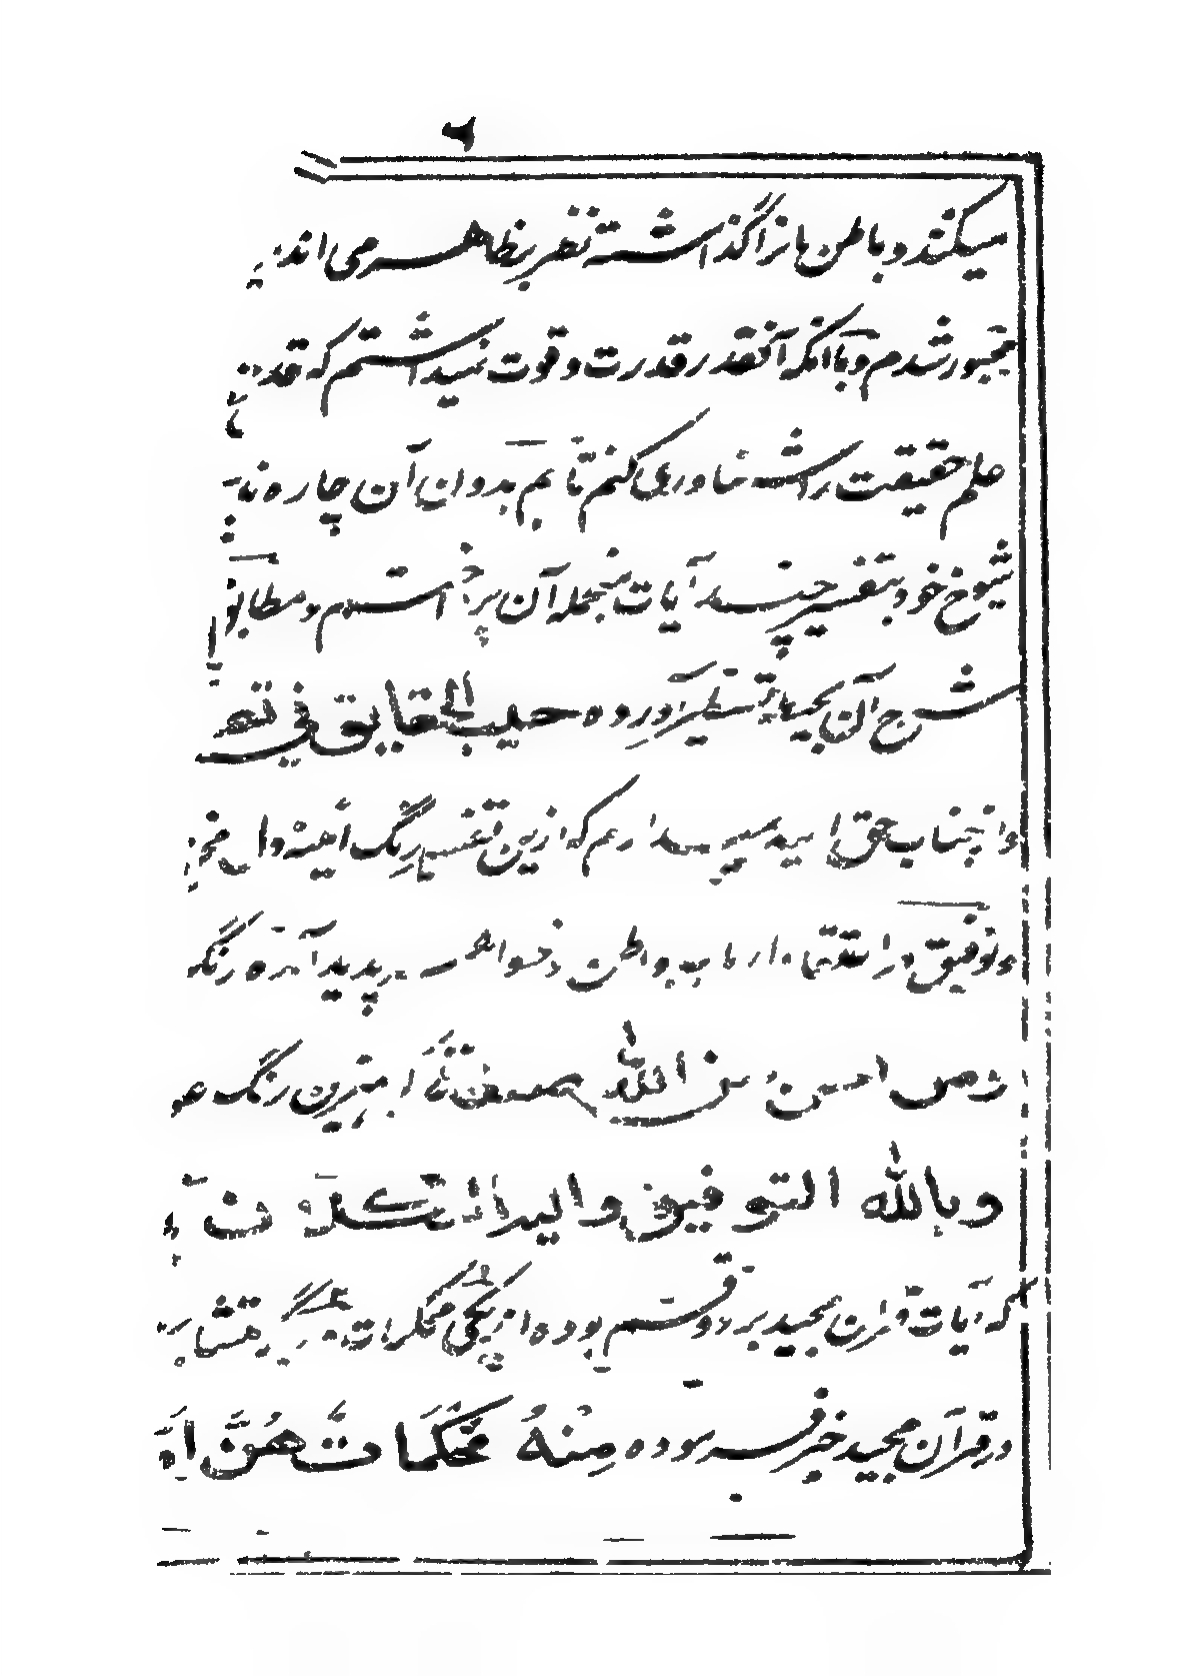 ۶
میکنند و باطن ها نرا گذاشته نظر بظاهر می اند
مجبور شدم و با آنکه آنقدر قدرت و قوت نمیداشتم که قد
علم حقیقت را شناوری کنم تا هم بدوان آن چاره نه
شیوخ خود بتفسیر چند آیات منجمله آن پرداختم و مطابق
شرح آن بحیطه تسطیر آورده حبیب الحقایق فی تفـ
و از جناب حق امید میدارم که ازین تفسیر رنگ آئینه دل
و توفیق در ارباب بواطن و خواص پدید آمده رنگ
ومن احسن من الله صبغة بهترین رنگ
وبالله التوفیق والیه التکلان
که آیات قرآن مجید بر دو قسم بوده از یکی محکمات دیگر متشابه
در قرآن مجید خبر فرموده مِنْهُ مُحْکَمَاتٌ هُنَّ